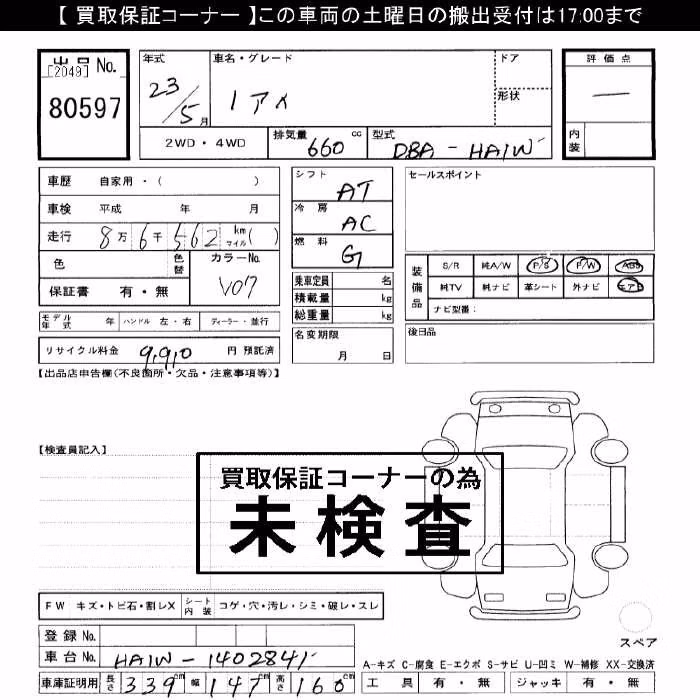 【 買取保証コーナー 】この車両の土曜日の搬出受付は17:00まで
出品 No.
[2049]
80597
年式
23/5 月
車名・グレード
ドア
形状
評価点
—
内装
2WD・4WD
排気量 660 cc
型式 DBA - HA1W
車歴 自家用・( )
車検 平成 年 月
走行 8万 6千 562 km マイル ( )
色
色替
カラーNo.
V07
保証書 有・無
モデル年式 年 ハンドル 左・右 ディーラー・並行
リサイクル料金 9,910 円 預託済
シフト AT
冷房 AC
燃料 G
乗車定員 名
積載量 kg
総重量 kg
名変期限
月 日
セールスポイント
装備品
S/R 純A/W P/S P/W ABS
純TV 純ナビ 革シート 外ナビ エアB
ナビ型番:
後日品
【出品店申告欄(不良箇所・欠品・注意事項等)】
【検査員記入】
買取保証コーナーの為
未検査
FW キズ・トビ石・割レX シート内装 コゲ・穴・汚レ・シミ・破レ・スレ
登録 No.
車台 No. HA1W - 1402841
車庫証明用 長さ 339 cm 幅 147 cm 高さ 160 cm
スペア
A-キズ C-腐食 E-エクボ S-サビ U-凹ミ W-補修 XX-交換済
工具 有・無 ジャッキ 有・無